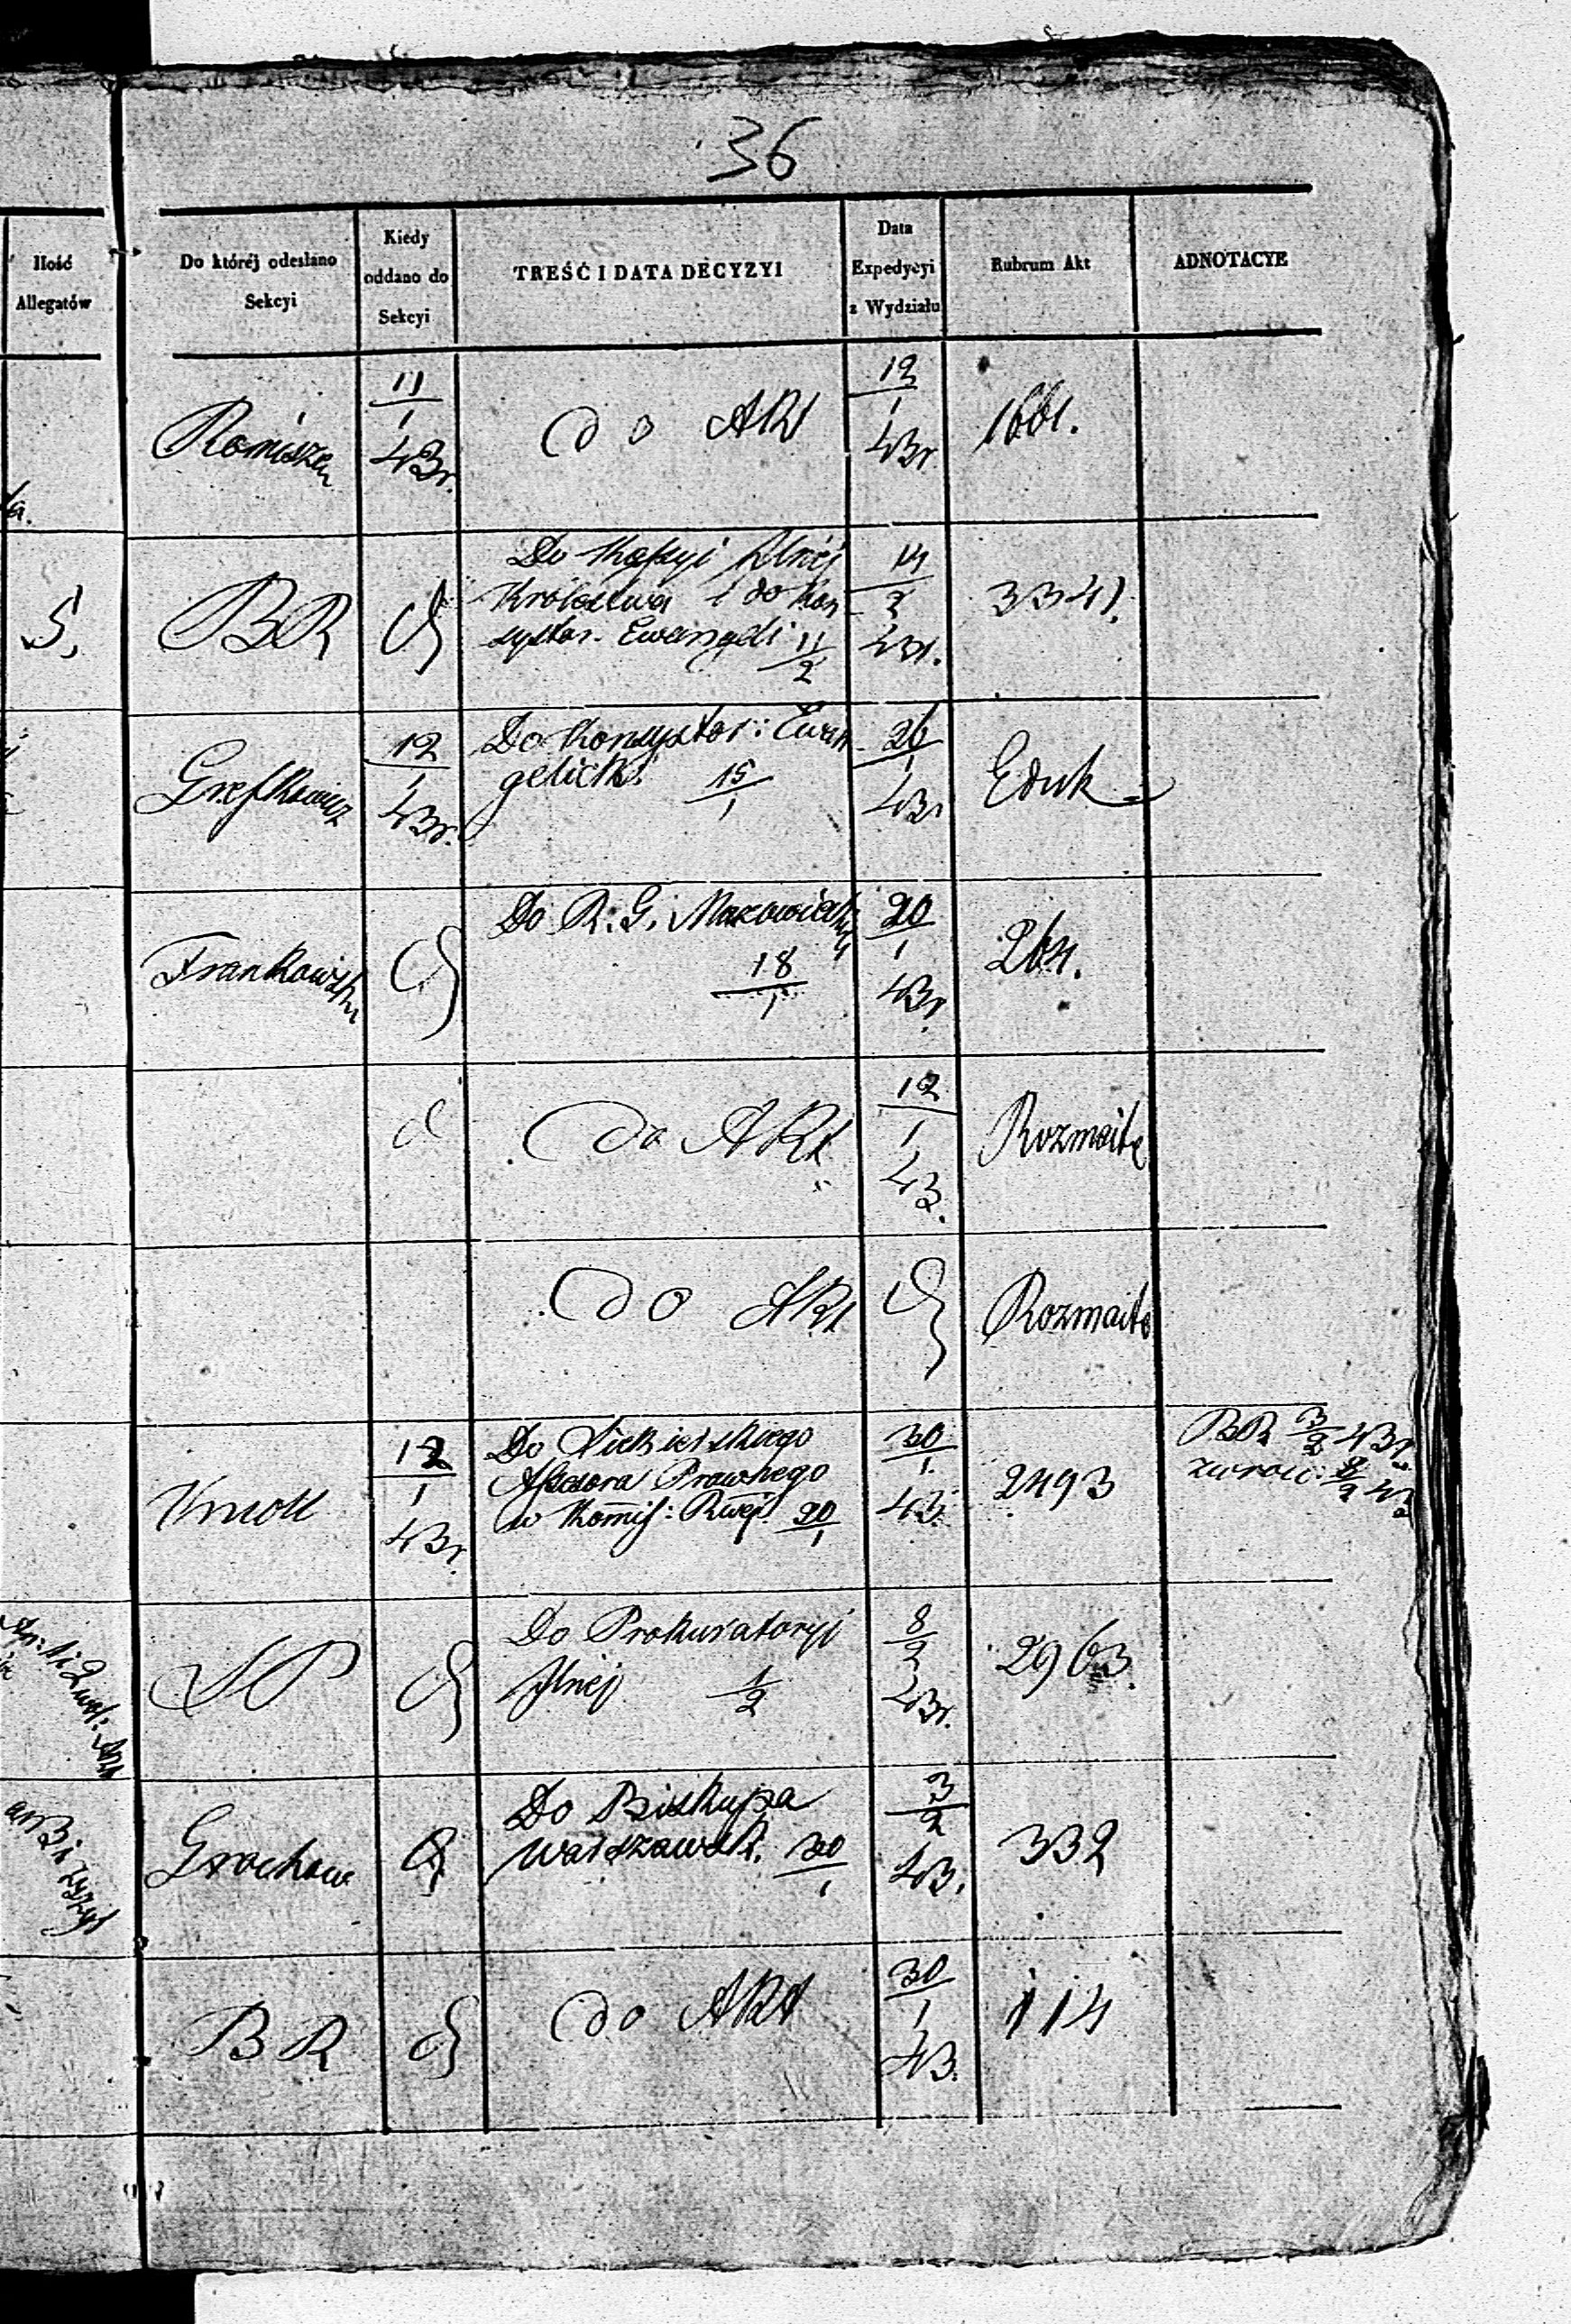 36
Ilość
Allegatów
Do któréj odesłano
Sekcyi
Kiedy
oddano do
Sekcyi
TREŚĆ I DATA DECYZYI
Data
Expedycyi
z Wydziału
Rubrum Akt
ADNOTACYE
11/1 43r.
do Akt
12/1 43r.
1661.
S,
BR
Do Kassyi Głnéj
Królestwa i do Kon
systor. Ewangeli 11/2
14/2 43r.
3341.
12/1 43r.
Do Konsystor: Ewan
gelick. 15/1
26/1 43r
Eduk
Frankowski
Do R. G. Mazowieck
18/1
20/1 43r.
264.
do Akt
12/1 43.
Rozmaite
do Akt
Rozmaite
Knoll
12/1 43r.
Do
Assesora Prawnego
w Kommis: Rząd. 20/1
30/1. 43.
2493
BR 3/2 43r.
SP
Do Prokuratoryi
Jlnéj 1/2
8/2 43r.
2963.
Grochow
Do Biskupa
Warszawsk. 30/1
3/2 43.
332
BR
do Akt
30/1 43.
114